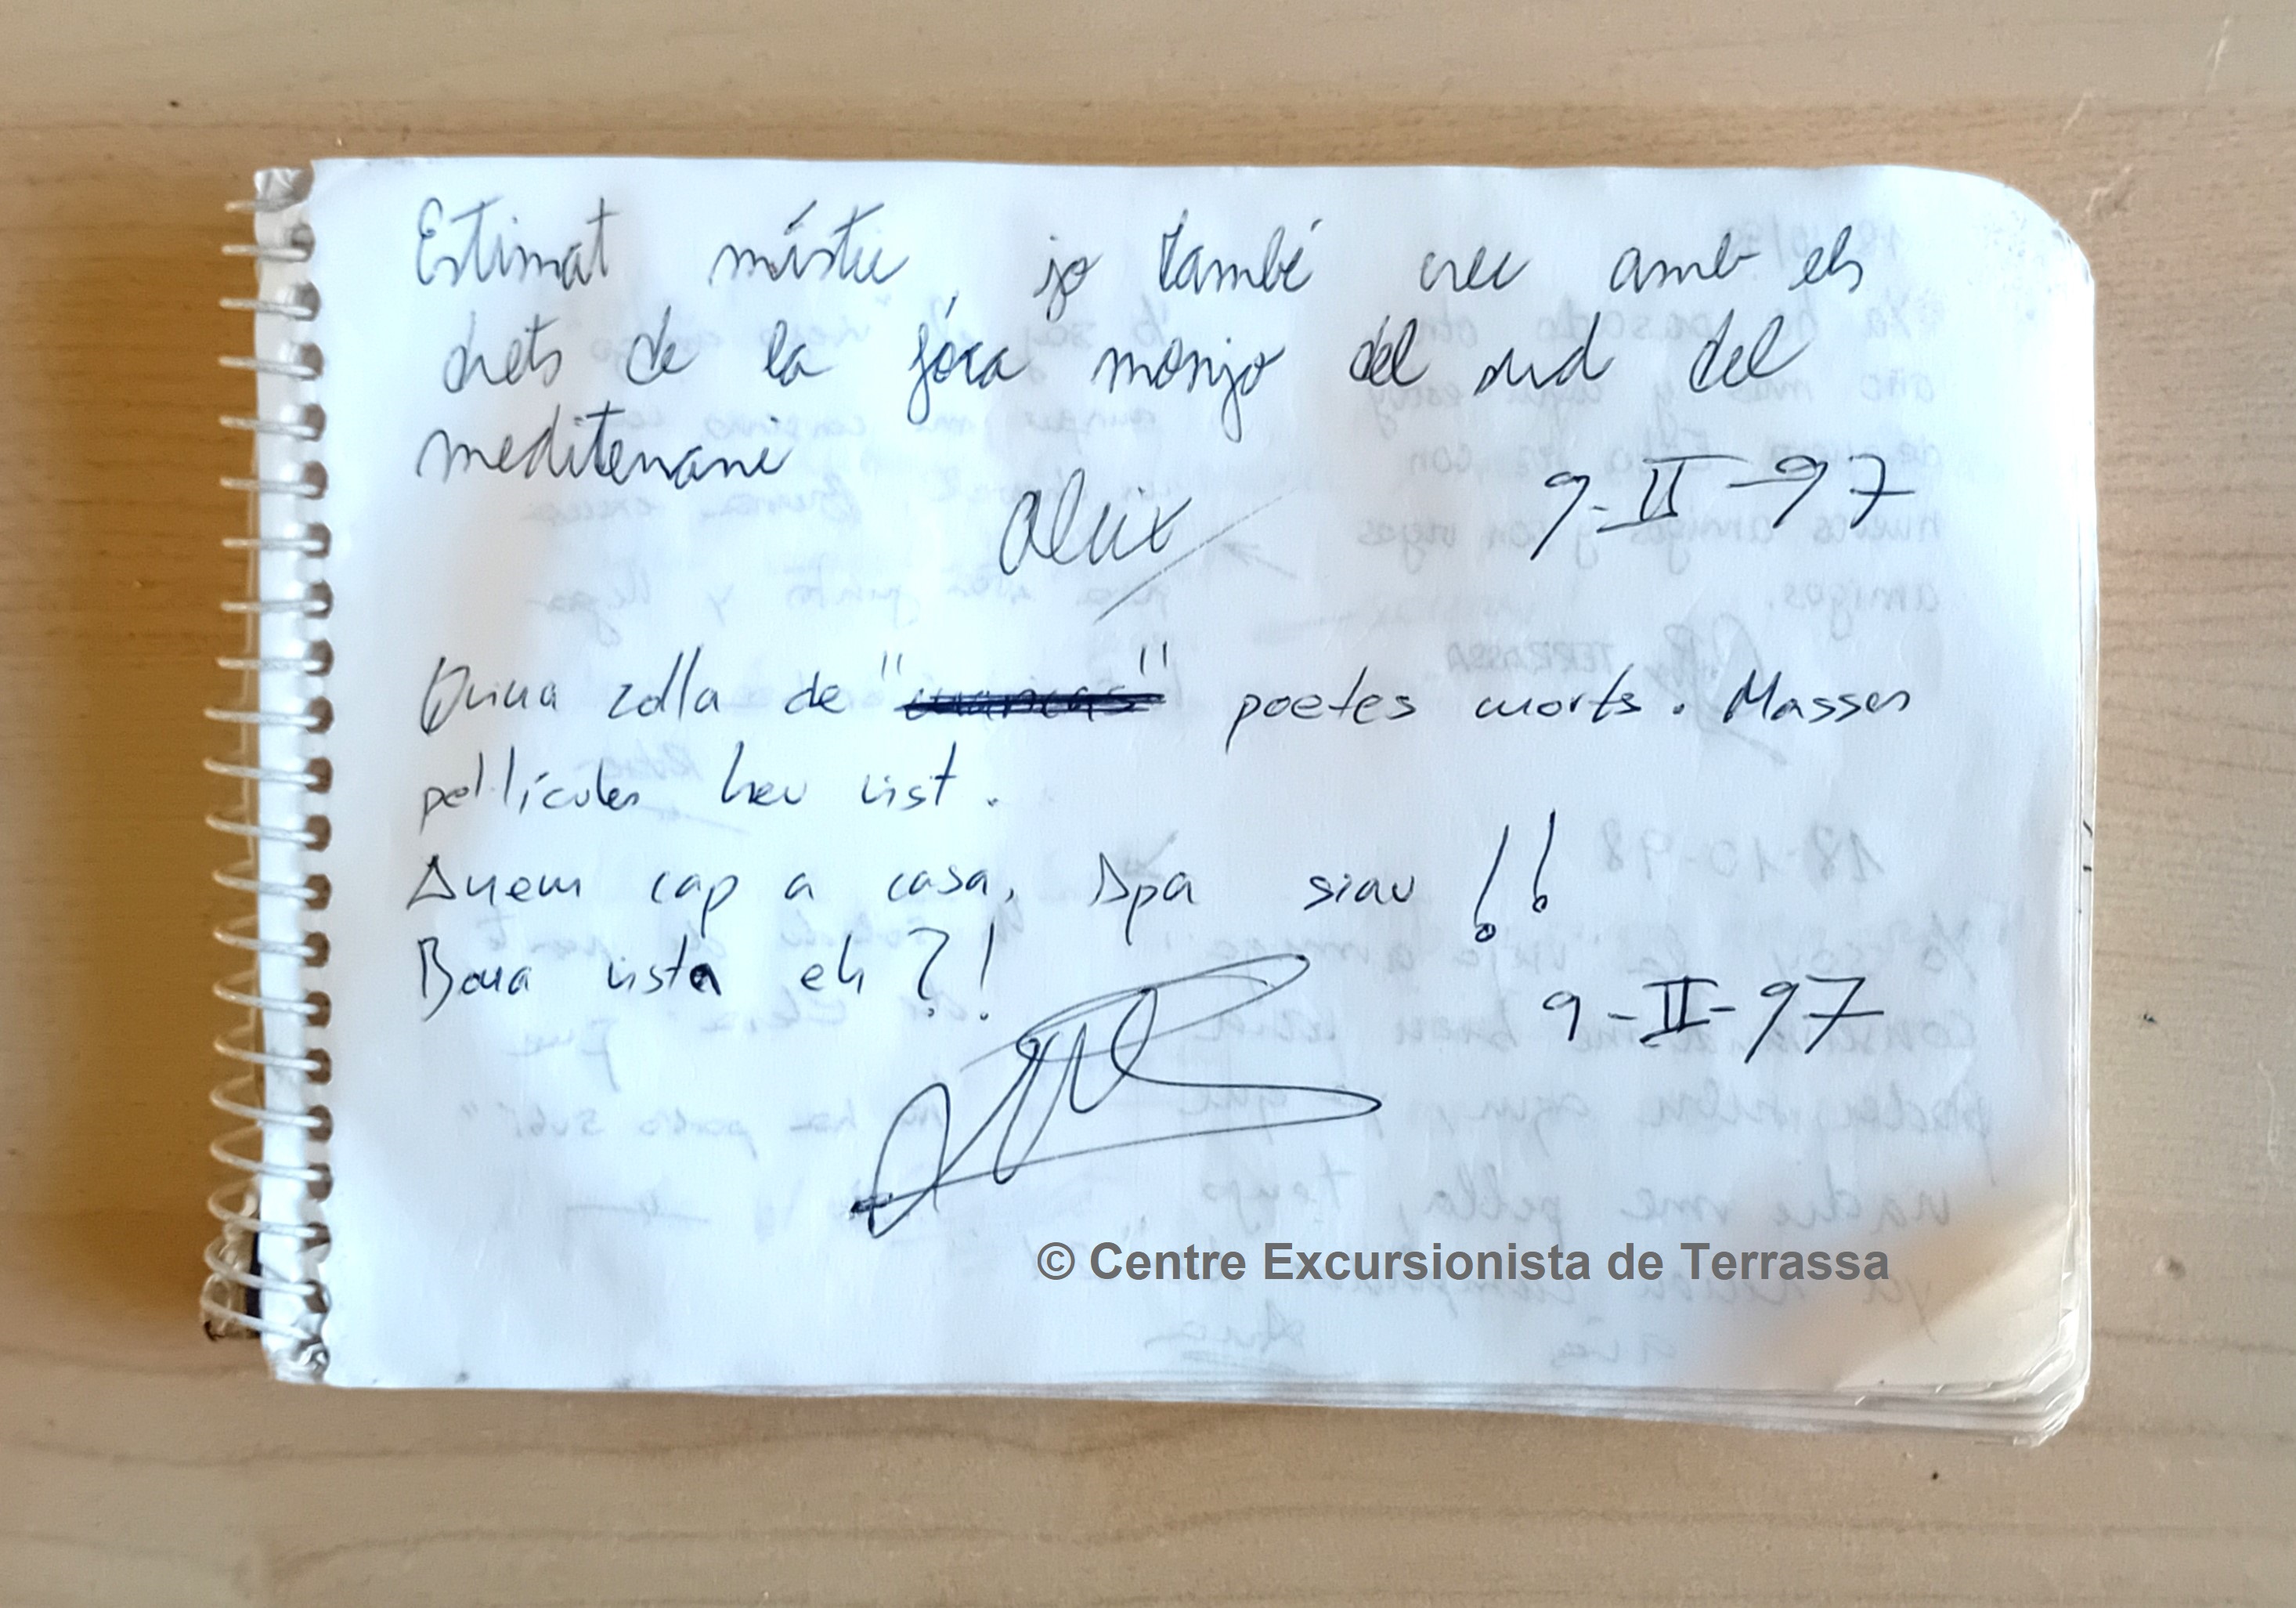 Estimat místic, jo també crec amb els
drets de la foca monjo del sud del
mediterrani
Aleix
9-II-97
Quina colla de " " poetes morts. Masses
pel·lícules heu vist.
Anem cap a casa. Apa siau!!
Bona vista eh?!
9-II-97
© Centre Excursionista de Terrassa